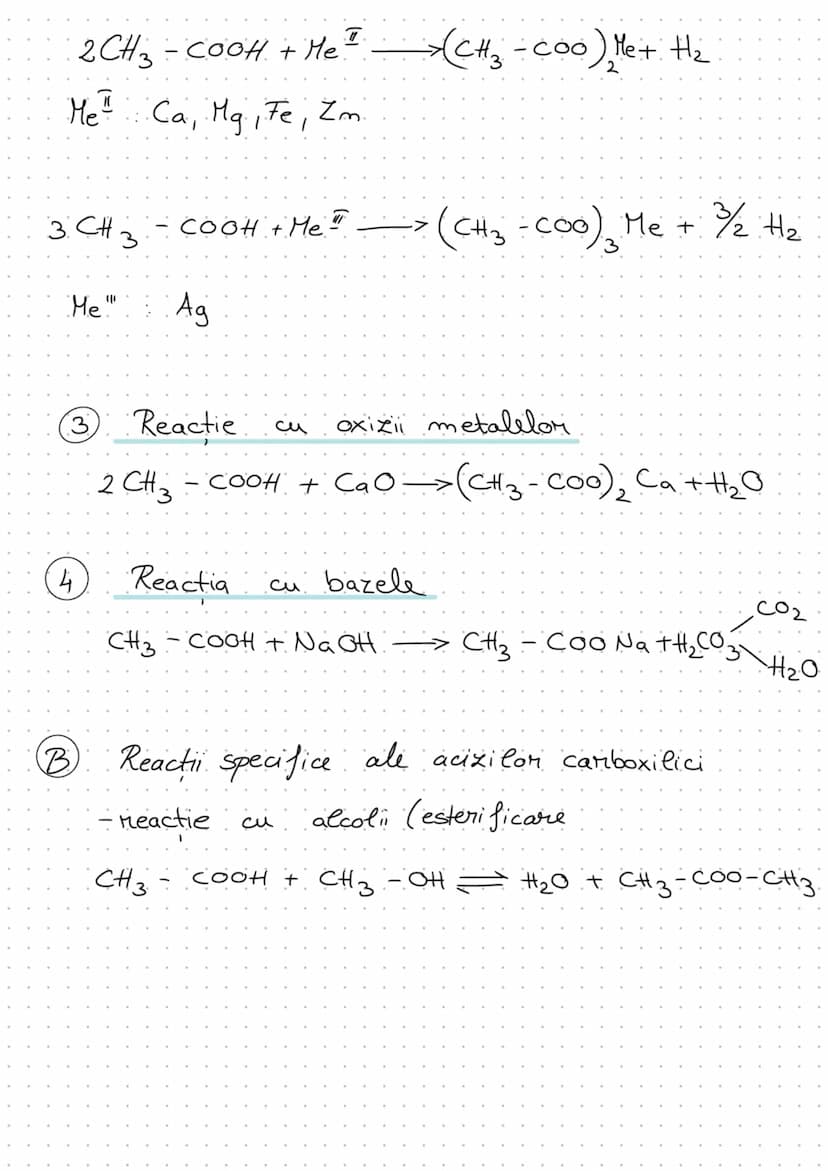 2CH₃ - COOH + Me^II → (CH₃ - COO)₂Me + H₂
Me^II : Ca, Mg, Fe, Zn
3 CH₃ - COOH + Me^III → (CH₃ - COO)₃ Me + 3/2 H₂
Me''' : Ag
③ Reacție cu oxizii metalelor
2 CH₃ - COOH + CaO → (CH₃ - COO)₂ Ca + H₂O
④ Reacția cu bazele
CH₃ - COOH + NaOH → CH₃ - COO Na + H₂CO₃ CO₂ H₂O
Ⓑ Reacții specifice ale acizilor carboxilici
- reacție cu alcolii (esterificare
CH₃ - COOH + CH₃ - OH ⇌ H₂O + CH₃ - COO - CH₃